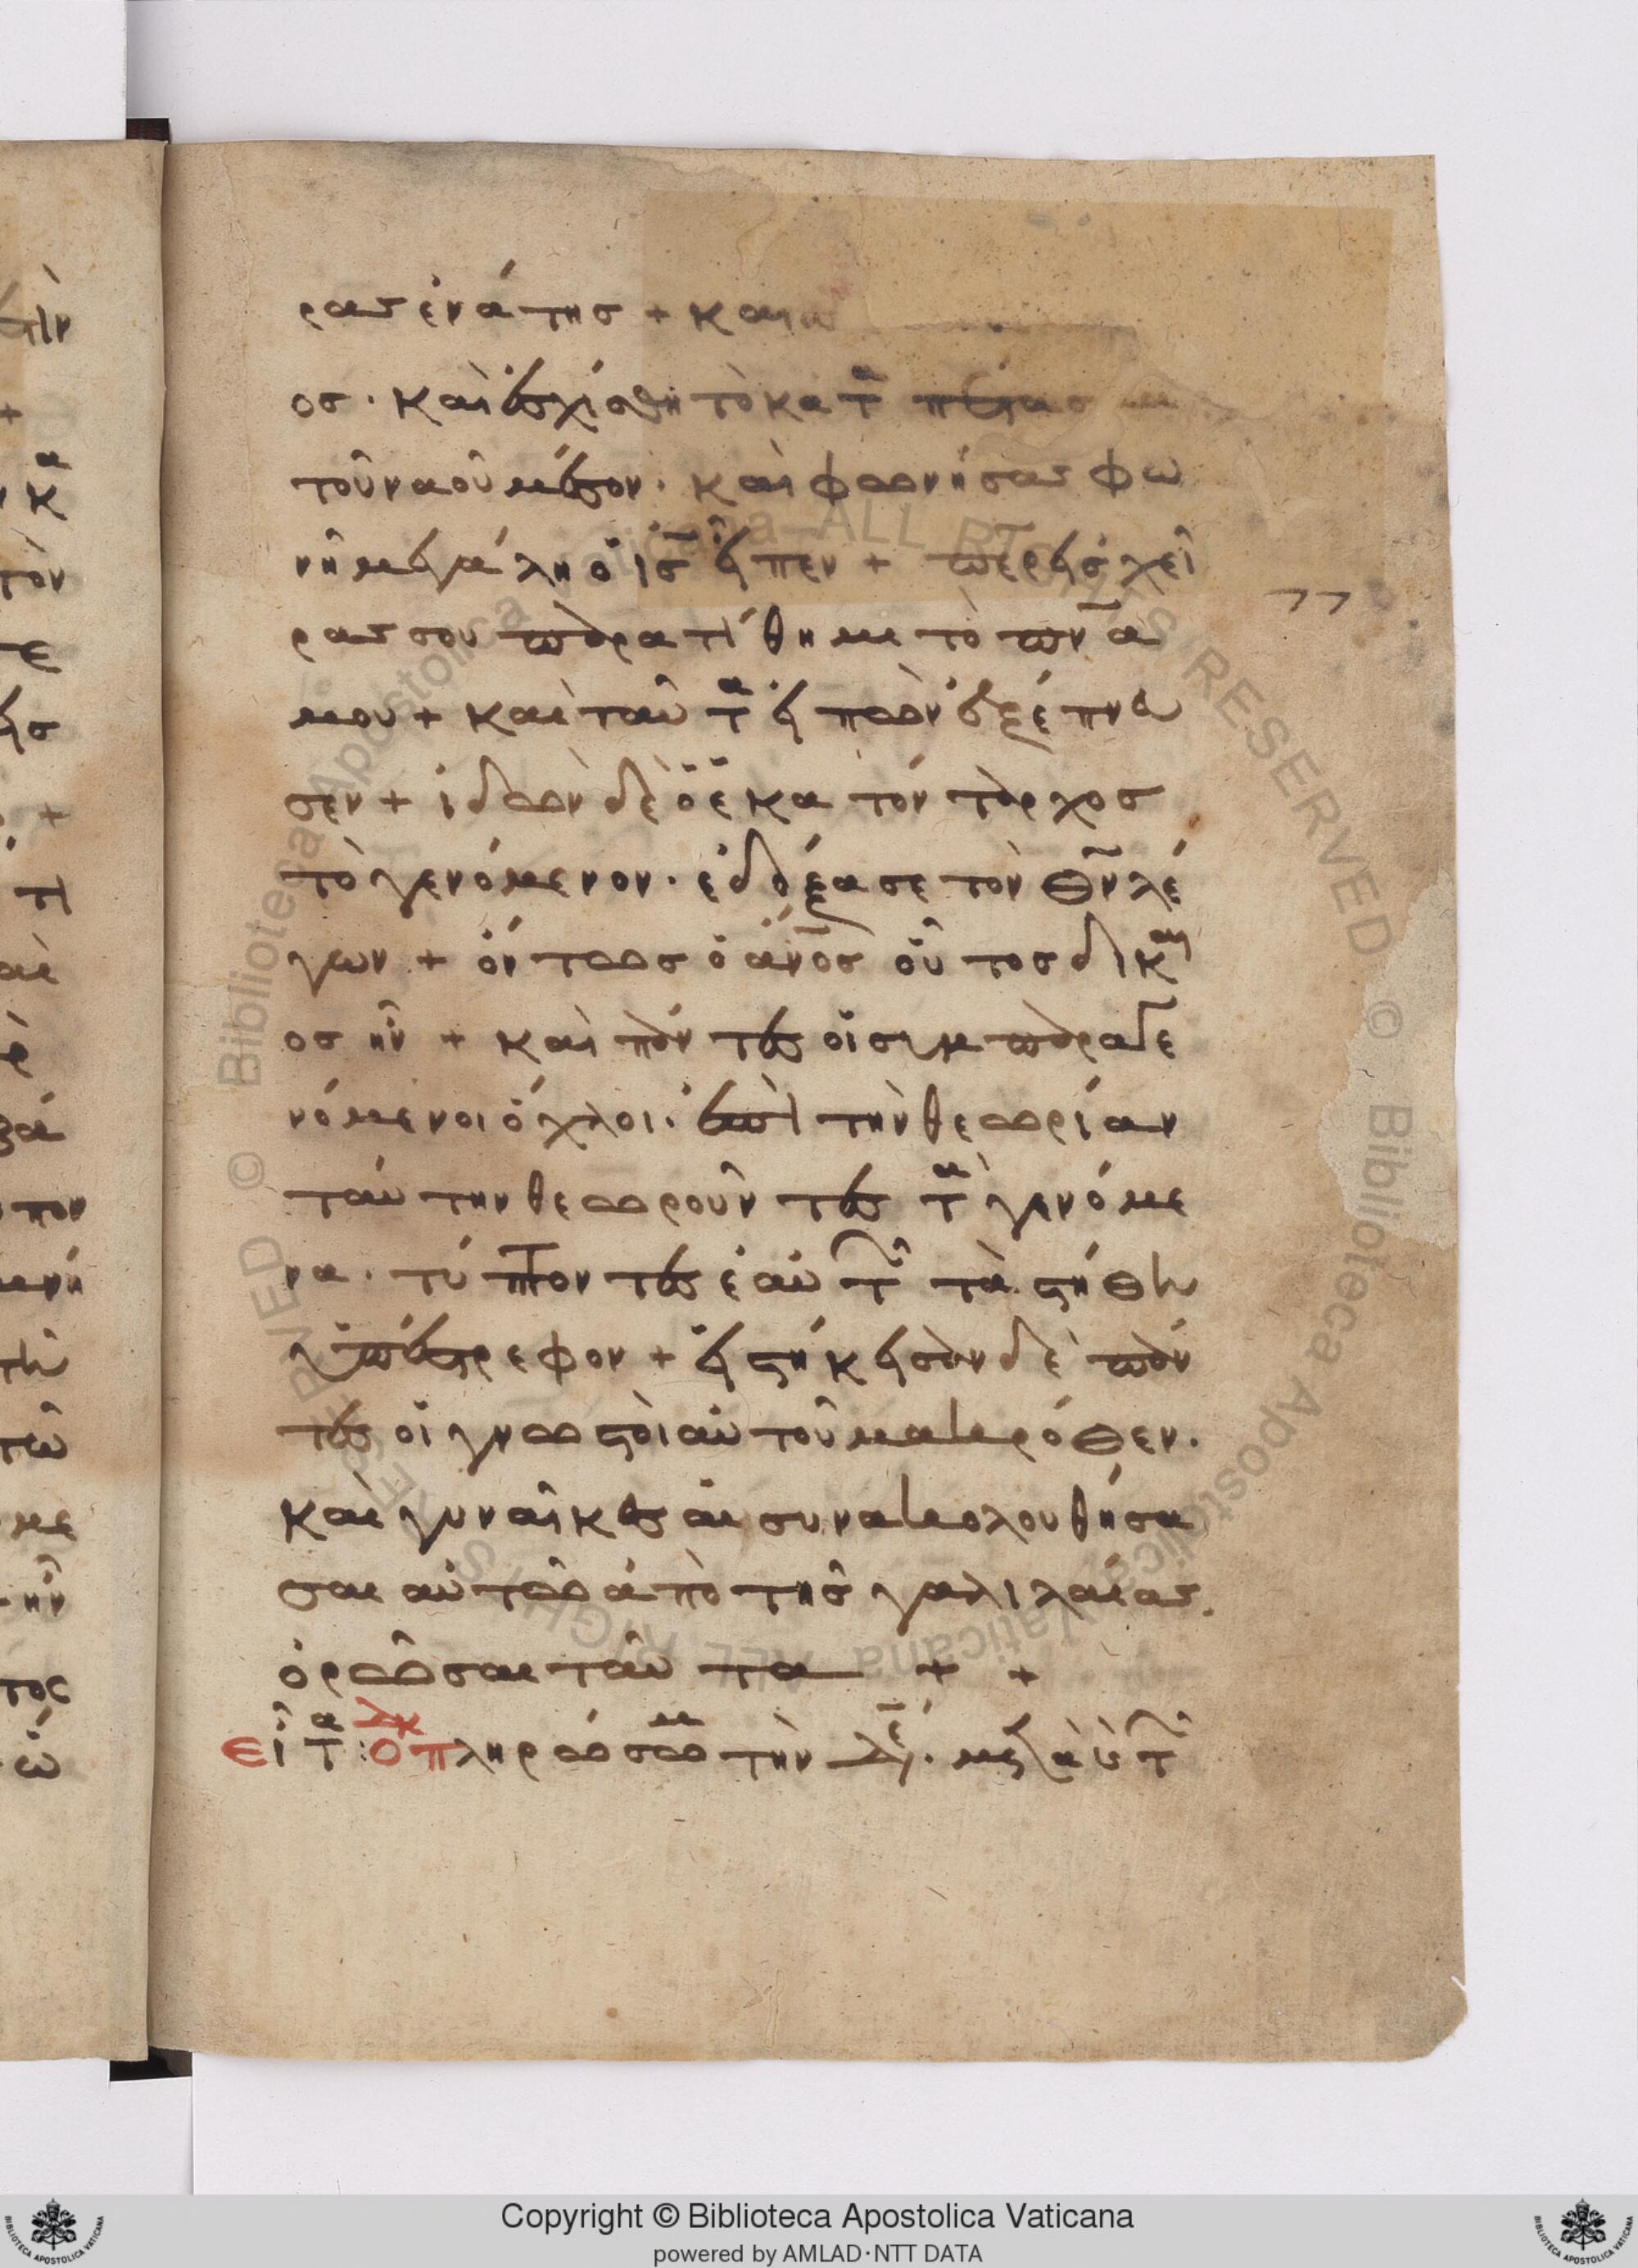 ρας ἐνάτης + και
ος · και ἐσχίσθη το κατα πέτασ
τοῦ ναοῦ μέσον · και φωνήσας φω
νῆ μεγάλη ὁ ις εἶπεν + περ εἰς χεῖ
ρας σου παρατίθημι το πνα
μου + καὶ ταῦτα εἰπὼν ἐξέπνευ
σεν + ἰδὼν δὲ ὁ ἑκατόνταρχος
τὸ γενόμενον · ἐδόξασε τὸν θν λέ
γων + ὄντως ὁ ἀνος οὗτος δίκαι
ος ἦν + καὶ πάντες οἱ συμπαραγε
νόμενοι ὄχλοι · ἐπὶ τὴν θεωρίαν
ταύτην θεωροῦντες τὰ γενόμε
να · τύπτοντες ἑαυτῶν τὰ στήθη
ὑπέστρεφον + εἱστήκεισαν δὲ πάν
τες οἱ γνωστοὶ αὐτοῦ μακρόθεν ·
καὶ γυναῖκες αἱ συνακολουθήσα
σαι αὐτῶ ἀπὸ τῆς γαλιλαίας .
ὁρῶσαι ταῦτα + +
εἶτα : Ο πληρώσωμ τὴν